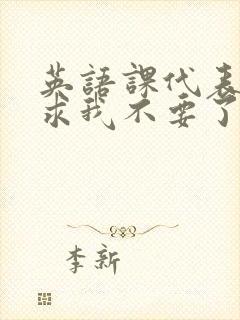 英語課代表
求我不要了
李新